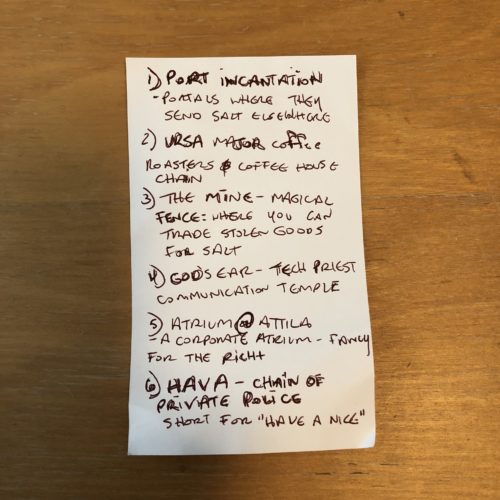 1) PORT INCANTATION
- PORTALS WHERE THEY
SEND SALT ELSEWHERE
2) URSA MAJOR COFFEE
ROASTERS & COFFEE HOUSE
CHAIN
3) THE MINE - MAGICAL
FENCE: WHERE YOU CAN
TRADE STOLEN GOODS
FOR SALT
4) GOD'S EAR - TECH PRIEST
COMMUNICATION TEMPLE
5) ATRIUM ATTILA
- A CORPORATE ATRIUM - FANCY
FOR THE RIGHT
6) HAVA - CHAIN OF
PRIVATE POLICE
SHORT FOR "HAVE A NICE"